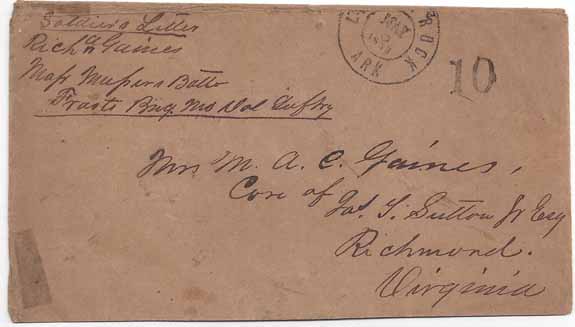 Soldier's Letter
Richd Gaines
Maj
Frosts Brig. Mo Vol Infty
ROCK
ARK
10
Mrs M. A. C. Gaines,
Care of Jas. T. Sutton Jr Esq
Richmond.
Virginia